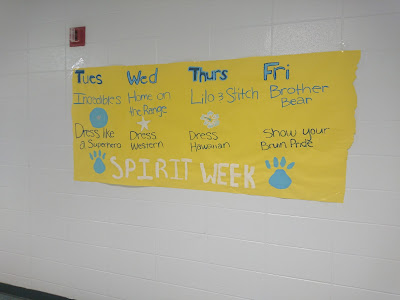 Tues
Incredibles
Dress like
a Superhero
Wed
Home on
the Range
Dress
Western
Thurs
Lilo & Stitch
Dress
Hawaiian
Fri
Brother
Bear
Show your
Bruin Pride
SPIRIT WEEK